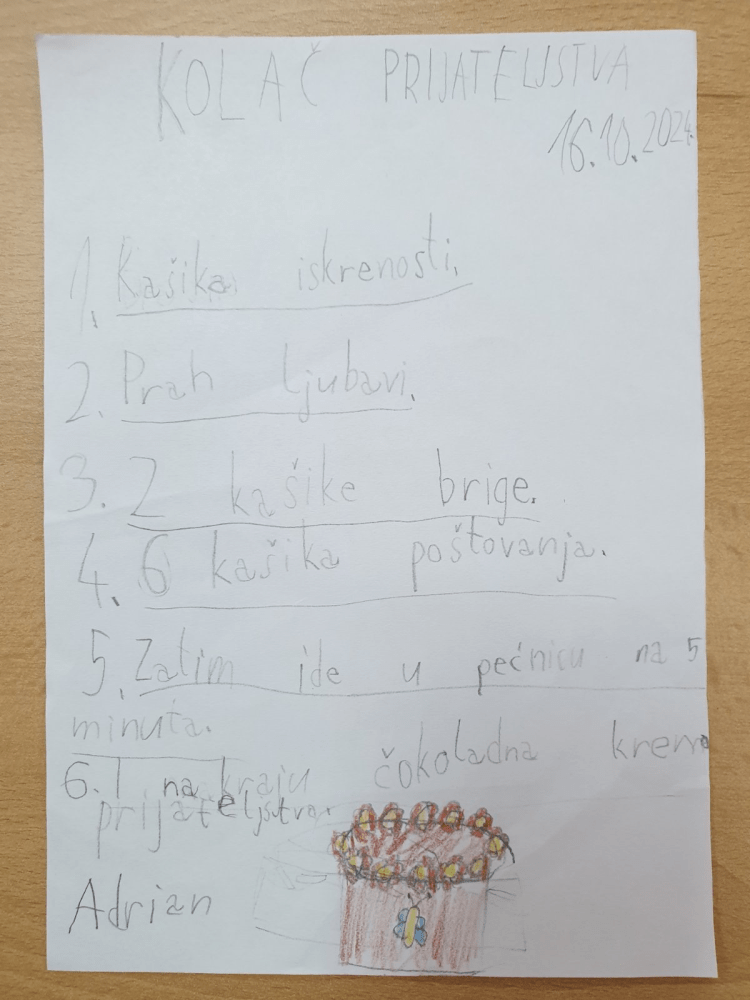 KOLAČ PRIJATELJSTVA
16.10.2024.
1. Kašika iskrenosti.
2. Prah ljubavi.
3. 2 kašike brige.
4. 6 kašika poštovanja.
5. Zatim ide u pećnicu na 5
minuta.
6. I na kraju čokoladna krema
prijateljstva.
Adrian